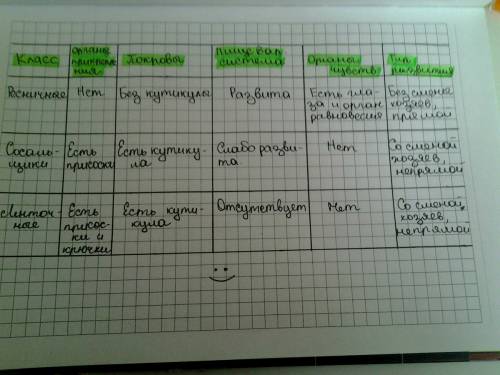 Класс
органы прикрепле-
ния
Покровы
Пищевар.
система
Органы
чувств
Тип
развития
Ресничные
Нет
Без кутикулы
Развита
Есть гла-
за и орган
равновесия
Без смены
хозяев,
прямой
Сосаль-
щики
Есть
присоски
Есть кутику-
ла
Слабо разви-
та
Нет
Со сменой
хозяев,
непрямой
Ленточ-
ные
Есть
присос-
ки и
крючки
Есть кути-
кула
Отсутствует
Нет
Со сменой
хозяев,
непрямой